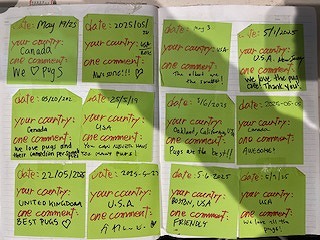 date: May 19/25
your country:
Canada
one comment:
We ♡ pugs
date: 2025/05/
your country:
USA
one comment:
AWESOME!! ♡
date: 05/10/202
your country:
Canada
one comment:
We love pugs and
their
date: 25/5/19
your country:
USA
one comment:
You can never have
too many pugs!
date: 22/05/2025
your country:
UNITED KINGDOM
one comment:
BEST PUGS ♡
date: 2025-5-23
your country:
U.S.A.
one comment:
date: May 3
your country: USA
one comment:
The
are the
date: 5/1/2025
your country:
U.S.A.
one comment:
We love the pug
Thank you!
date: 5/6/2025
your country:
Oakland, California
one comment:
Pugs are the best!!
date: 2025-05-05
your country:
Canada
one comment:
AWESOME!
date: 5.6.2025
your country:
BOSTON, USA
one comment:
FRIENDLY
date:
your country:
USA
one comment:
We love all the
pugs!